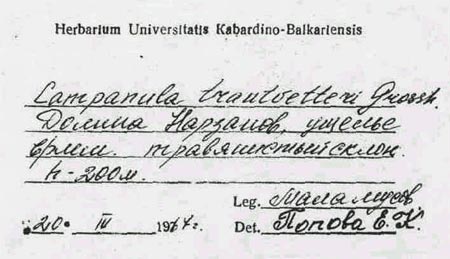 Herbarium Universitatis Kabardino-Balkariensis
Campanula trautvetteri Grossh.
Долина Нарзанов, ущелье
травянистый склон.
h-200м.
Leg.
"20" IV 197 г.
Det. Попова Е.К.